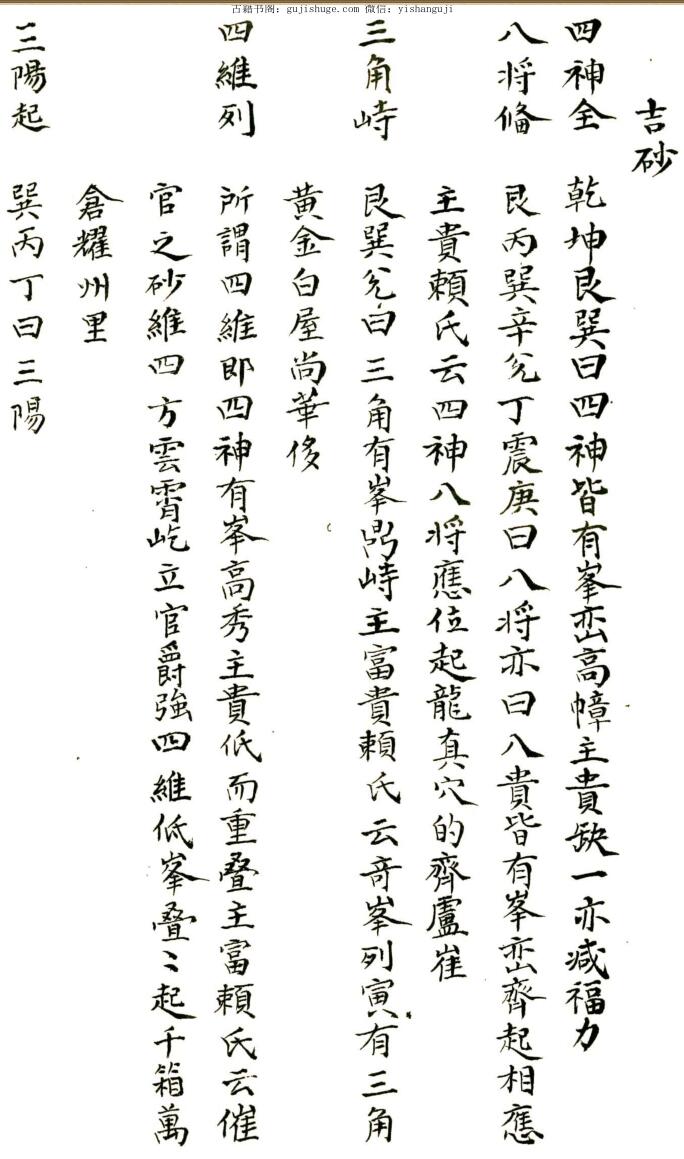 古籍书阁：gujishuge.com 微信：yishanguji
吉砂
四神全 乾坤艮巽曰四神皆有峯峦高幛主貴缺一亦減福力
八将俻 艮丙巽辛兊丁震庚曰八将亦曰八貴皆有峯峦齊起相應
主貴頼氏云四神八将應位起龍真穴的齊盧崔
三角峙 艮巽兊曰三角有峯鼎峙主富貴頼氏云奇峯列寅有三角
黄金白屋尚華侈
四維列 所謂四維即四神有峯高秀主貴低而重疊主富頼氏云催
官之砂維四方雲霄屹立官爵強四維低峯疊〻起千箱萬
倉耀州里
三陽起 巽丙丁曰三陽